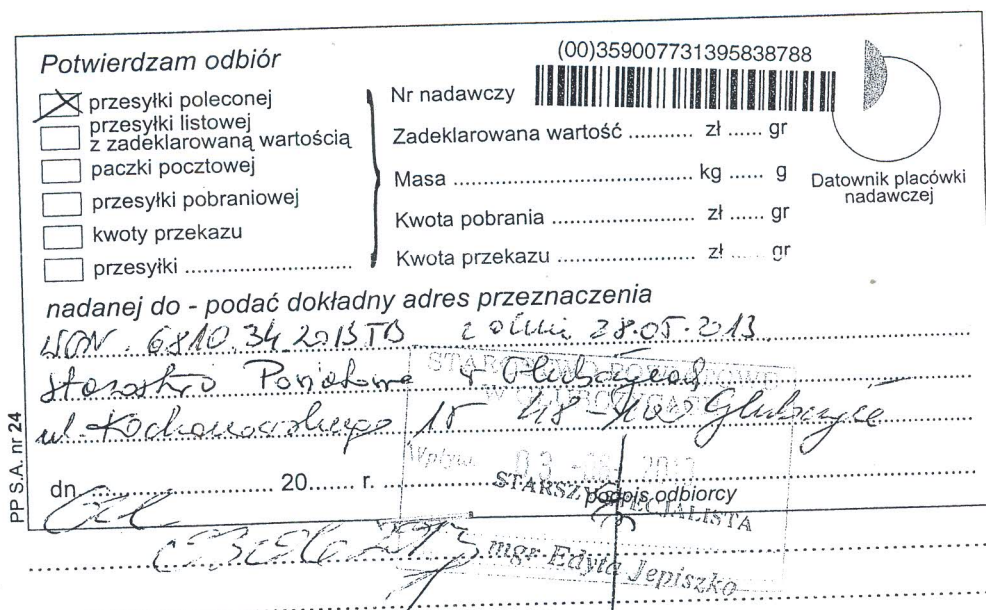 Potwierdzam odbiór
przesyłki poleconej
przesyłki listowej
z zadeklarowaną wartością
paczki pocztowej
przesyłki pobraniowej
kwoty przekazu
przesyłki ..............................
(00)359007731395838788
Nr nadawczy
Zadeklarowana wartość ........... zł ...... gr
Masa .......................................... kg ...... g
Kwota pobrania ......................... zł ...... gr
Kwota przekazu ........................ zł ...... gr
Datownik placówki
nadawczej
nadanej do - podać dokładny adres przeznaczenia
6810.34.2013 TB z dnia 28.05.2013
STAROSTWO POWIATOWE
W GŁUBCZYCACH
Starostwo Powiatowe w Głubczycach
ul. Kochanowskiego 15 48-100 Głubczyce
Wpływ. 03 2013
dn ........................... 20....... r.
podpis odbiorcy
STARSZY SPECJALISTA
mgr Edyta Jepiszko
PP S.A. nr 24